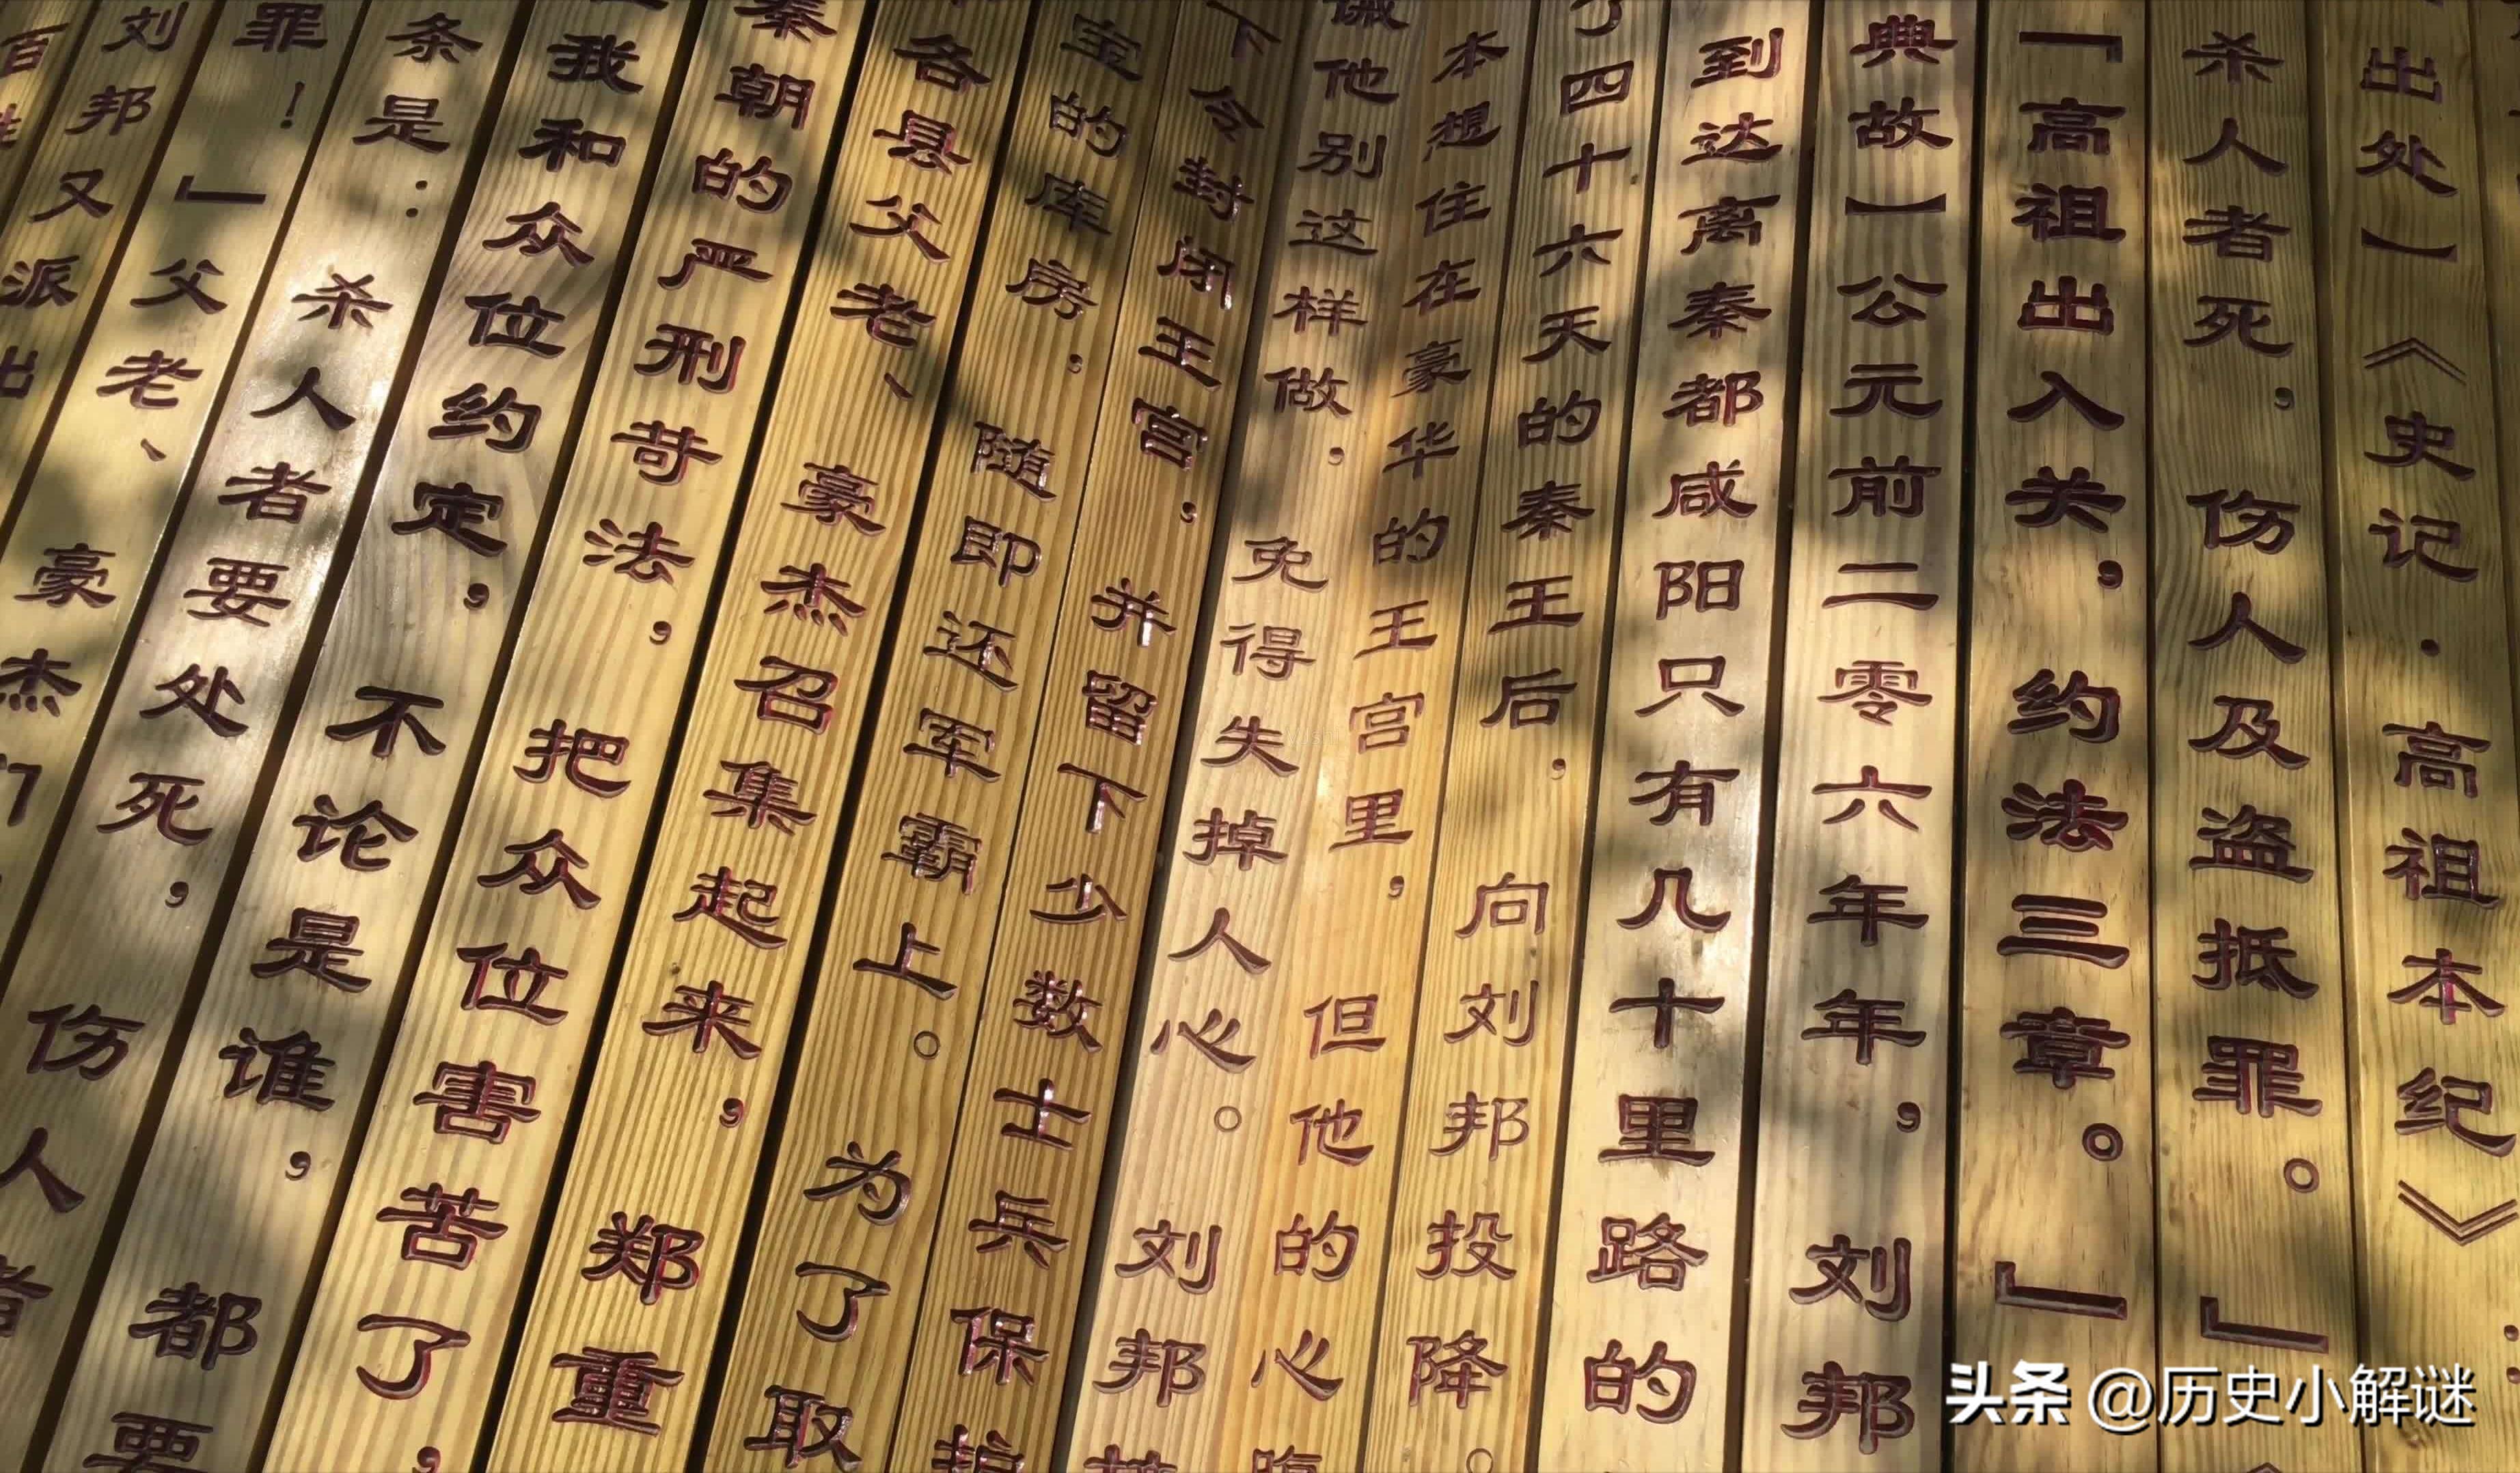 出处】《史记·高祖本纪》
杀人者死，伤人及盗抵罪。」
「高祖出入关，约法三章。」
典故】公元前二零六年年，刘邦
到达离秦都咸阳只有几十里路的
了四十六天的秦王后，向刘邦投降。
本想住在豪华的王宫里，但他的心
诫他别这样做，免得失掉人心。刘邦
下令封闭王宫，并留下少数士兵保护
宝的库房，随即还军霸上。为了取
各县父老、豪杰召集起来，郑重
秦朝的严刑苛法，把众位害苦了，
我和众位约定，不论是谁，都要
条是：杀人者要处死，伤人者
罪！」父老、豪杰们
刘邦又派出
百姓
头条 @历史小解谜